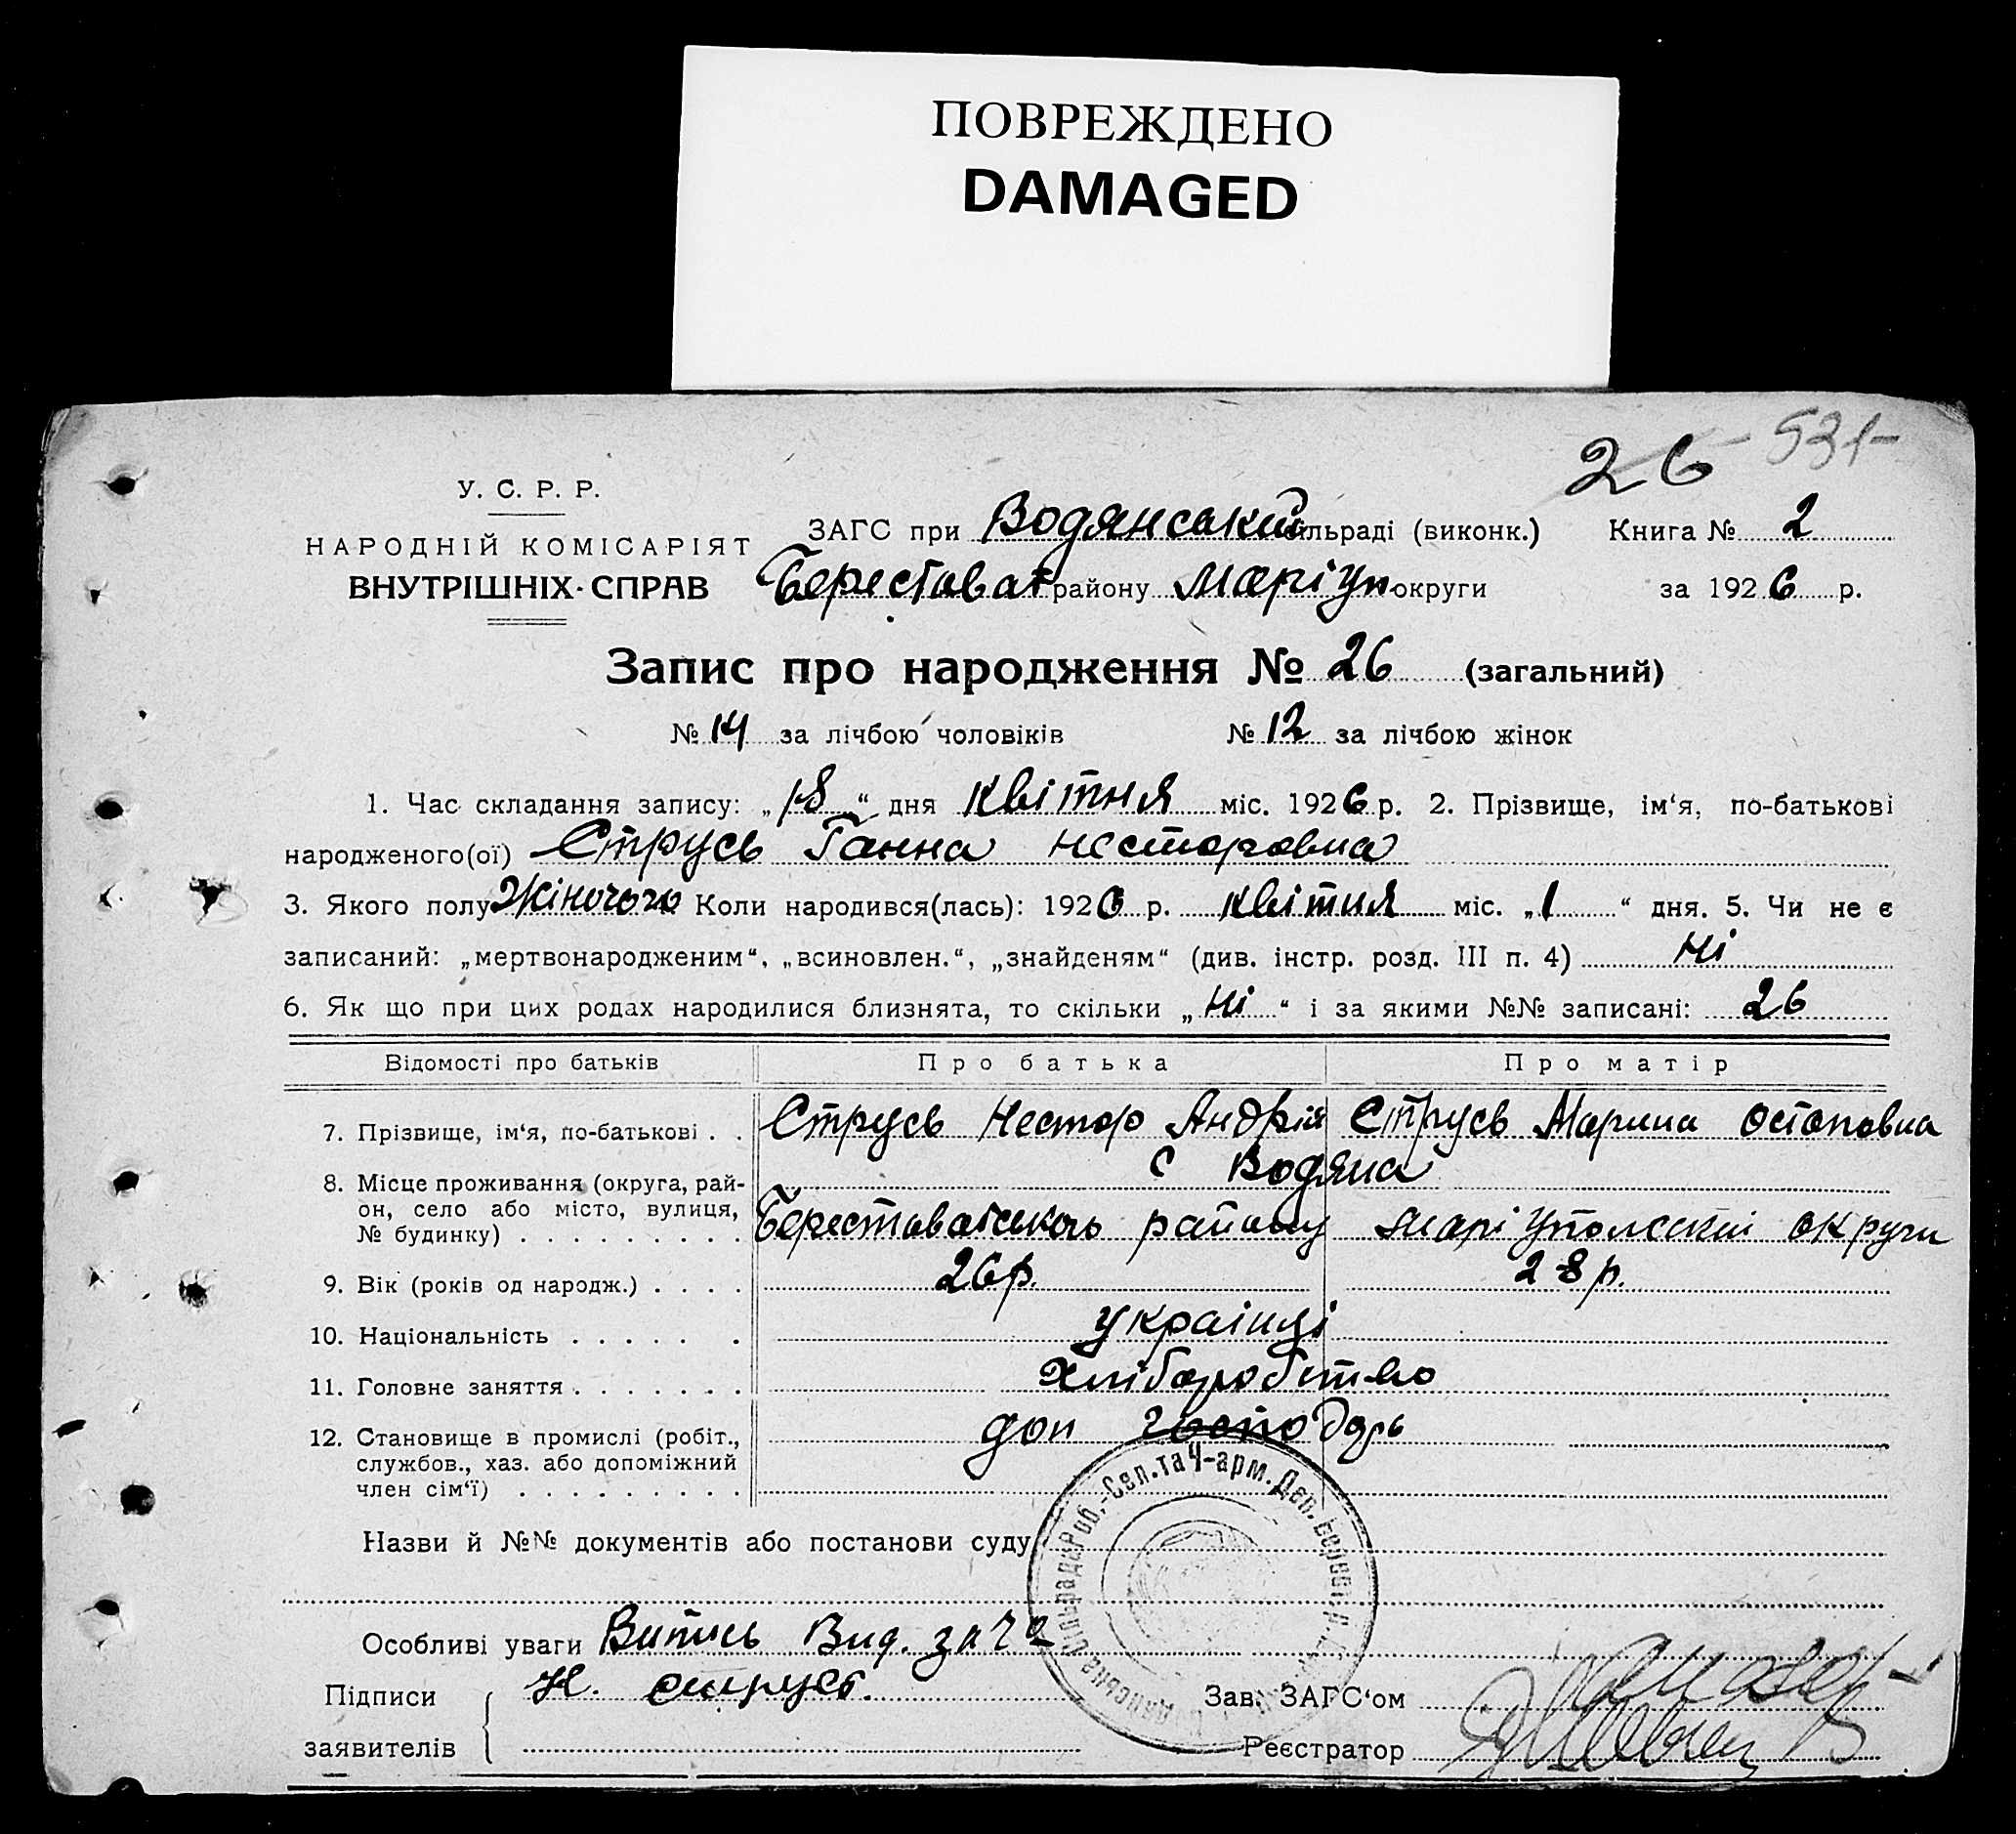 ПОВРЕЖДЕНО
DAMAGED
26 531
У. С. Р. Р.
НАРОДНІЙ КОМІСАРІЯТ
ВНУТРІШНІХ СПРАВ
ЗАГС при Водянський сільраді (виконк.) Книга № 2
Берестоват району Маріуп округи за 1926 р.
Запис про народження № 26 (загальний)
№ 14 за лічбою чоловіків № 12 за лічбою жінок
1. Час складання запису: „18“ дня квітня міс. 1926 р. 2. Прізвище, ім‘я, по-батькові
народженого(ої) Струсь Ганна Несторовна
3. Якого полу Жіночого Коли народився(лась): 1926 р. квітня міс. „1“ дня. 5. Чи не є
записаний: „мертвонародженим“, „всиновлен.“, „знайденям“ (див. інстр. розд. III п. 4) Ні
6. Як що при цих родах народилися близнята, то скільки „Ні“ і за якими №№ записані: 26
Відомості про батьків Про батька Про матір
7. Прізвище, ім‘я, по-батькові . . Струсь Нестор Андрій Струсь Марина Остаповна
8. Місце проживання (округа, рай-
он, село або місто, вулиця,
№ будинку) . . . . . . . . .
с Водяна
Берестоватського району Маріупольскій округи
9. Вік (років од народж.) . . . . 26 р. 28 р.
10. Національність . . . . . . українці
11. Головне заняття . . . . . . . Хліборобство
12. Становище в промислі (робіт.,
службов., хаз. або допоміжний
член сім‘ї) . . . . . . . . .
доп господарь
Назви й №№ документів або постанови суду
Особливі уваги Випись Вид. за №
Підписи Н. Струсь.
заявителів
Зав. ЗАГС‘ом
Реєстратор
Сільрада Роб.-Сел. та Ч-арм. Деп.